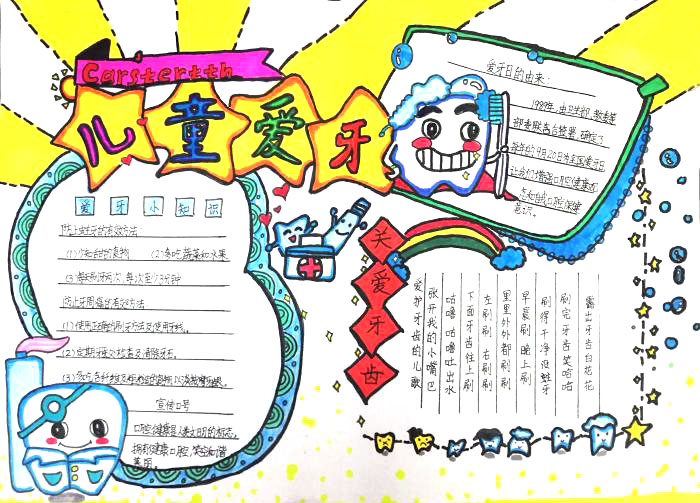 Carsterth
儿童爱牙
爱牙日的由来：
1989年，由卫生部、教委等
部委联合签署，确定了
每年的9月20日为全国爱牙日
爱牙小知识
防止蛀牙的有效方法：
(1)少吃甜的食物 (2)多吃蔬菜和水果
(3)每天刷牙两次，每次至少3分钟
防止牙周病的有效方法
(1)使用正确的刷牙方法及使用牙线。
(2)定期牙医处检查及清除牙石。
宣传口号
口腔健康是人类文明的标志。
拥有健康口腔，笑出和谐
美丽。
关爱牙齿
爱护牙齿的儿歌
张开我的小嘴巴
咕噜咕噜吐出水
下面牙齿往上刷
左刷刷 右刷刷
里里外外都刷刷
早晨刷 晚上刷
刷得干净没蛀牙
刷完牙齿笑哈哈
露出牙齿白花花